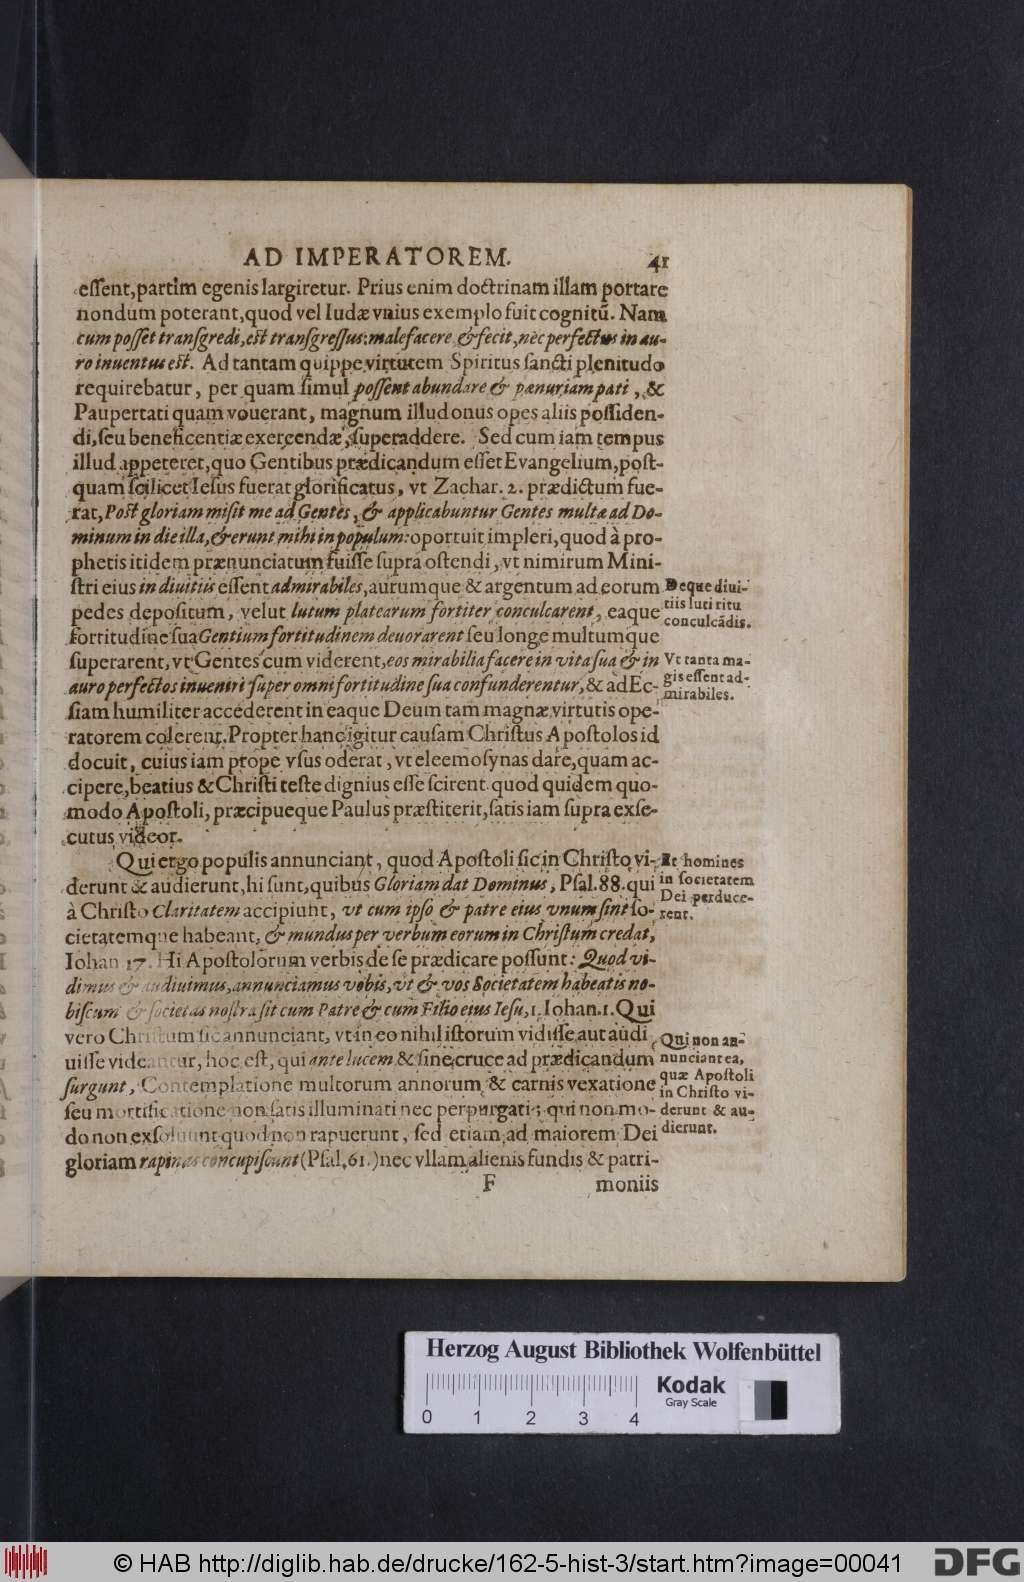 AD IMPERATOREM. 41
eſſent, partim egenis largiretur. Prius enim doctrinam illam portare
nondum poterant, quod vel Iudæ vnius exemplo fuit cognitū. Nam
cum poſſet tranſgredi, eſt tranſgreſſus: malefacere & fecit, nec perfectus in au-
ro inuentus eſt. Ad tantam quippe virtutem Spiritus ſancti plenitudo
requirebatur, per quam ſimul poſſent abundare & pœnuriam pati, &
Paupertati quam vouerant, magnum illud onus opes aliis poſſiden-
di, ſeu beneficentiæ exercendæ, ſuperaddere. Sed cum iam tempus
illud appeteret, quo Gentibus prædicandum eſſet Evangelium, poſt-
quam ſcilicet Ieſus fuerat glorificatus, vt Zachar. 2. prædictum fue-
rat, Poſt gloriam miſit me ad Gentes, & applicabuntur Gentes multæ ad Do-
minum in die illa, & erunt mihi in populum: oportuit impleri, quod à pro-
phetis itidem prænunciatum fuiſſe ſupra oſtendi, vt nimirum Mini-
ſtri eius in diuitiis eſſent admirabiles, aurumque & argentum ad eorum
pedes depoſitum, velut lutum platearum fortiter conculcarent, eaque
fortitudine ſua Gentium fortitudinem deuorarent ſeu longe multumque
ſuperarent, vt Gentes cum viderent, eos mirabilia facere in vita ſua & in
auro perfectos inueniri ſuper omni fortitudine ſua confunderentur, & ad Ec-
ſiam humiliter accederent in eaque Deum tam magnæ virtutis ope-
ratorem colerent. Propter hanc igitur cauſam Chriſtus Apoſtolos id
docuit, cuius iam prope vſus oderat, vt eleemoſynas dare, quam ac-
cipere, beatius & Chriſti teſte dignius eſſe ſcirent. quod quidem quo-
modo Apoſtoli, præcipueque Paulus præſtiterit, ſatis iam ſupra exſe-
cutus videor.
Qui ergo populis annunciant, quod Apoſtoli ſic in Chriſto vi-
derunt & audierunt, hi ſunt, quibus Gloriam dat Dominus, Pſal. 88. qui
à Chriſto Claritatem accipiunt, vt cum ipſo & patre eius vnum ſint ſo-
cietatemque habeant, & mundus per verbum eorum in Chriſtum credat,
Iohan 17. Hi Apoſtolorum verbis de ſe prædicare poſſunt: Quod vi-
dimus & audiuimus, annunciamus vobis, vt & vos Societatem habeatis no-
biſcum & ſocietas noſtra ſit cum Patre & cum Filio eius Ieſu, 1. Iohan. 1. Qui
vero Chriſtum ſic annunciant, vt in eo nihil iſtorum vidiſſe aut audi
uiſſe videantur, hoc eſt, qui ante lucem & ſine cruce ad prædicandum
ſurgunt, Contemplatione multorum annorum & carnis vexatione
ſeu mortificatione non ſatis illuminati nec perpurgati; qui non mo-
do non exſoluunt quod non rapuerunt, ſed etiam ad maiorem Dei
gloriam rapinas concupiſcunt (Pſal. 61.) nec vllam alienis fundis & patri-
F moniis
Deque diui-
tiis luti ritu
conculcādis.
Vt tanta ma-
gis eſſent ad-
mirabiles.
Et homines
in ſocietatem
Dei perduce-
rent.
Qui non an-
nunciant ea,
quæ Apoſtoli
in Chriſto vi-
derunt & au-
dierunt.
Herzog August Bibliothek Wolfenbüttel
Kodak
Gray Scale
0 1 2 3 4
© HAB http://diglib.hab.de/drucke/162-5-hist-3/start.htm?image=00041
DFG